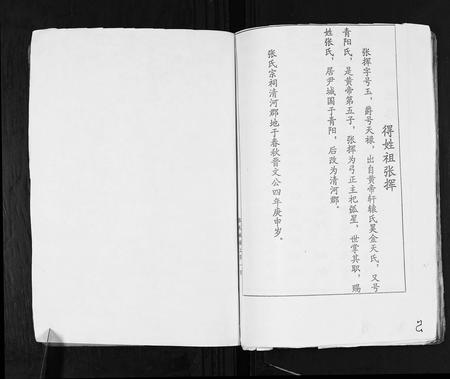 得姓祖张挥
张挥字号玉，爵号天禄，出自黄帝轩辕氏昊金天氏，又号
青阳氏，是黄帝第五子，张挥为弓正主祀弧星，世掌其职，赐
姓张氏，居尹城国于青阳，后改为清河郡。
张氏宗祠清河郡地于春秋晋文公四年庚申岁。
2